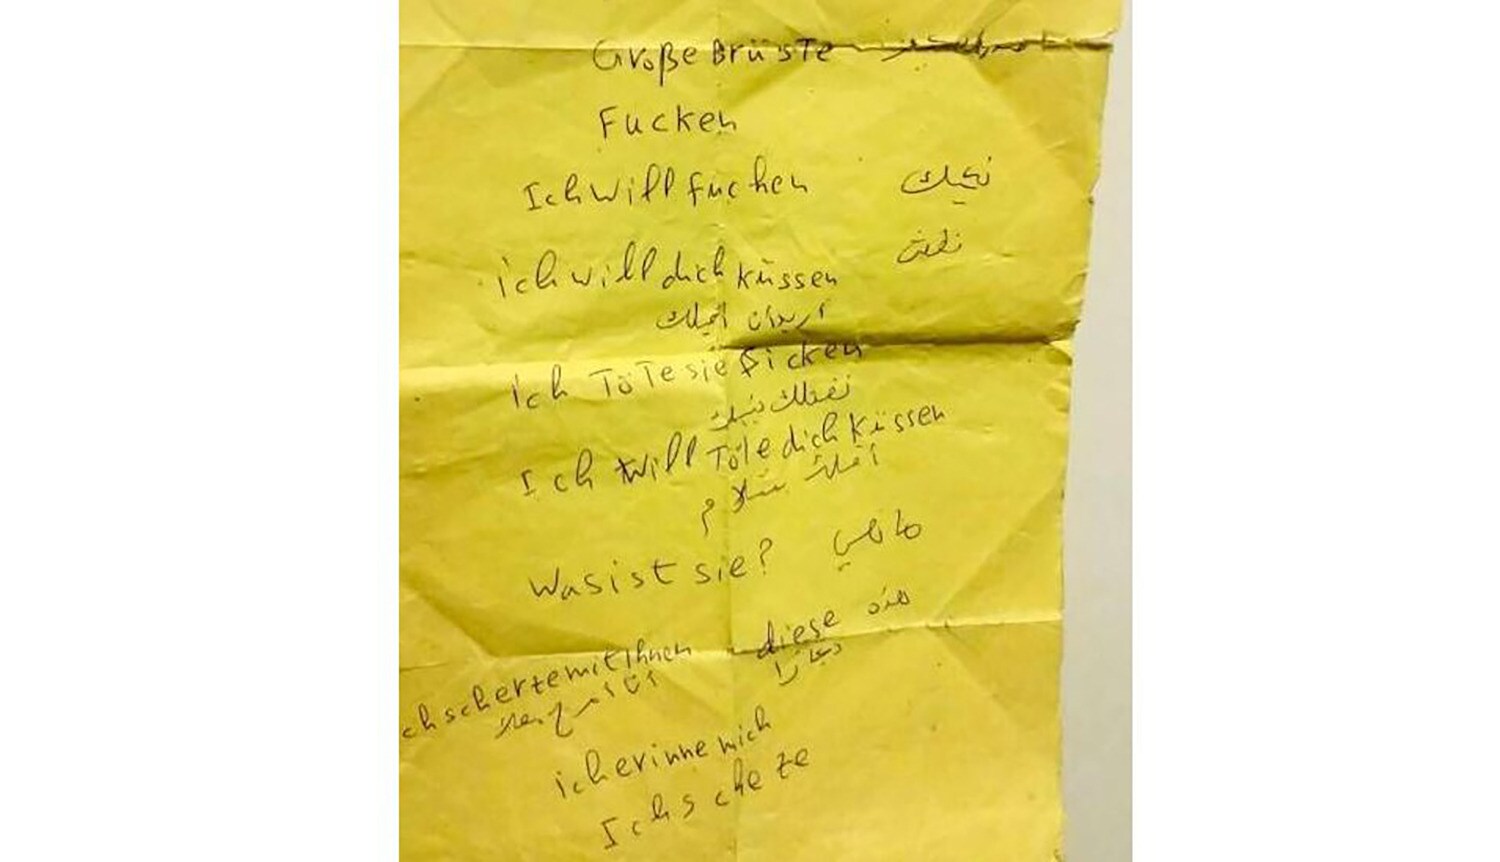 Große Brüste
Fucken
Ich will fucken نيك
ich will dich küssen
اريد ان اقبلك
ich Töte sie ficken
نقتلك نيك
Ich will Töte dich küssen
Was ist sie? ما هي
ch scherze mit Ihnen diese هذه
انا امزح معك
ich erinne mich
Ich scheze